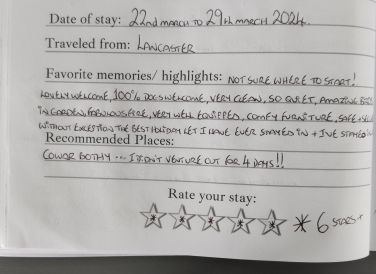 Date of stay: 22nd MARCH TO 29th MARCH 2024.
Traveled from: LANCASTER
Favorite memories/ highlights: NOT SURE WHERE TO START!
LOVELY WELCOME, 100% DOGS WELCOME, VERY CLEAN, SO QUIET, AMAZING
IN GARDEN, FABULOUS FIRE, VERY WELL EQUIPPED, COMFY FURNITURE, SAFE +
WITHOUT EXCEPTION THE BEST HOLIDAY LET I HAVE EVER STAYED IN + I'VE STAYED IN
Recommended Places:
BOTHY ... I DIDN'T VENTURE OUT FOR 4 DAYS!!
Rate your stay:
* * * * * * 6 STARS +